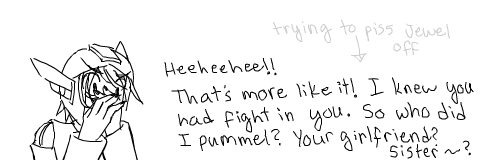 trying to piss Jewel
off
Heeheehee!!
That's more like it! I knew you
had fight in you. So who did
I pummel? Your girlfriend?
Sister~?